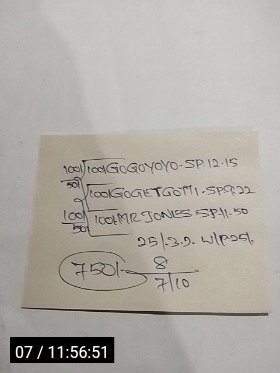 100/ 100/GOGOYOYO-SP.12.15
50/
100/GOGETGOMI-SP.9.22
100/ 100/MR JONES SP.11.50
50/
25/-3.2. W/P25/-
750/- 8
7/10
07 / 11:56:51